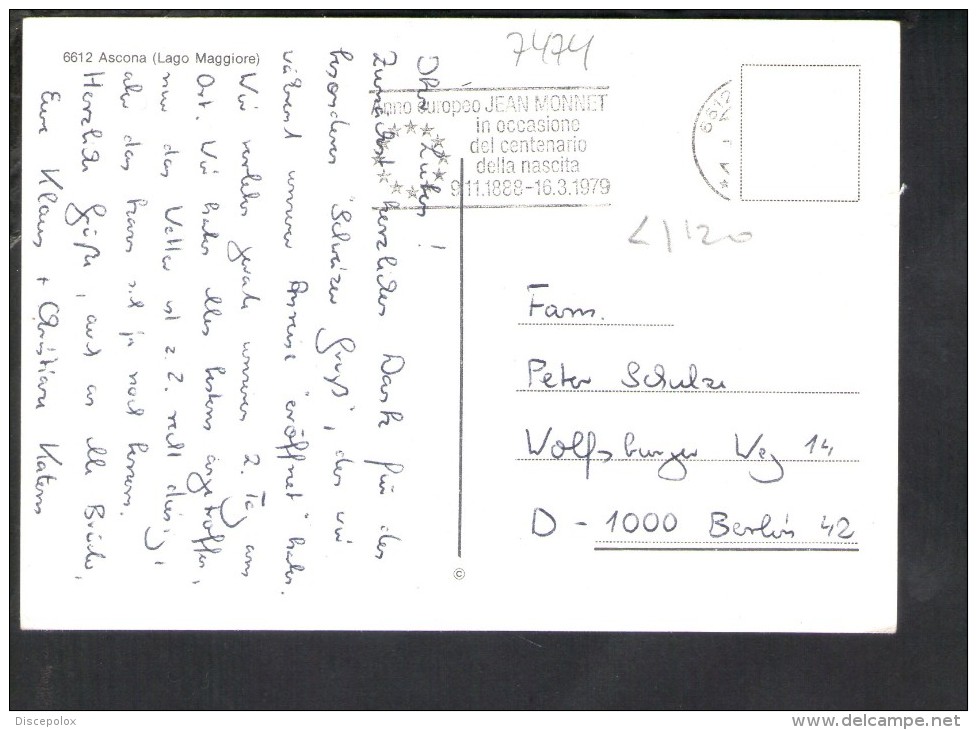 6612 Ascona (Lago Maggiore)
7474
anno europeo JEAN MONNET
in occasione
del centenario
della nascita
9.11.1888-16.3.1979
6612
L/120
Ihr Lieben!
Zunächst herzlichen Dank für den
besonderen "Schweizer Gruß", den wir
während unserer Anreise "eröffnet" haben.
Wir verleben gerade unseren 2. Tag am
Ort. Wir haben alles bestens angetroffen,
nur das Wetter ist z. Z. recht diesig,
aber das kann sich ja noch bessern.
Herzliche Grüße, auch an alle Brüder,
Eure Klaus + Christiane
Fam.
Peter Schulze
Wolfsburger Weg 14
D - 1000 Berlin 42
©
Discepolox
www.delcampe.net